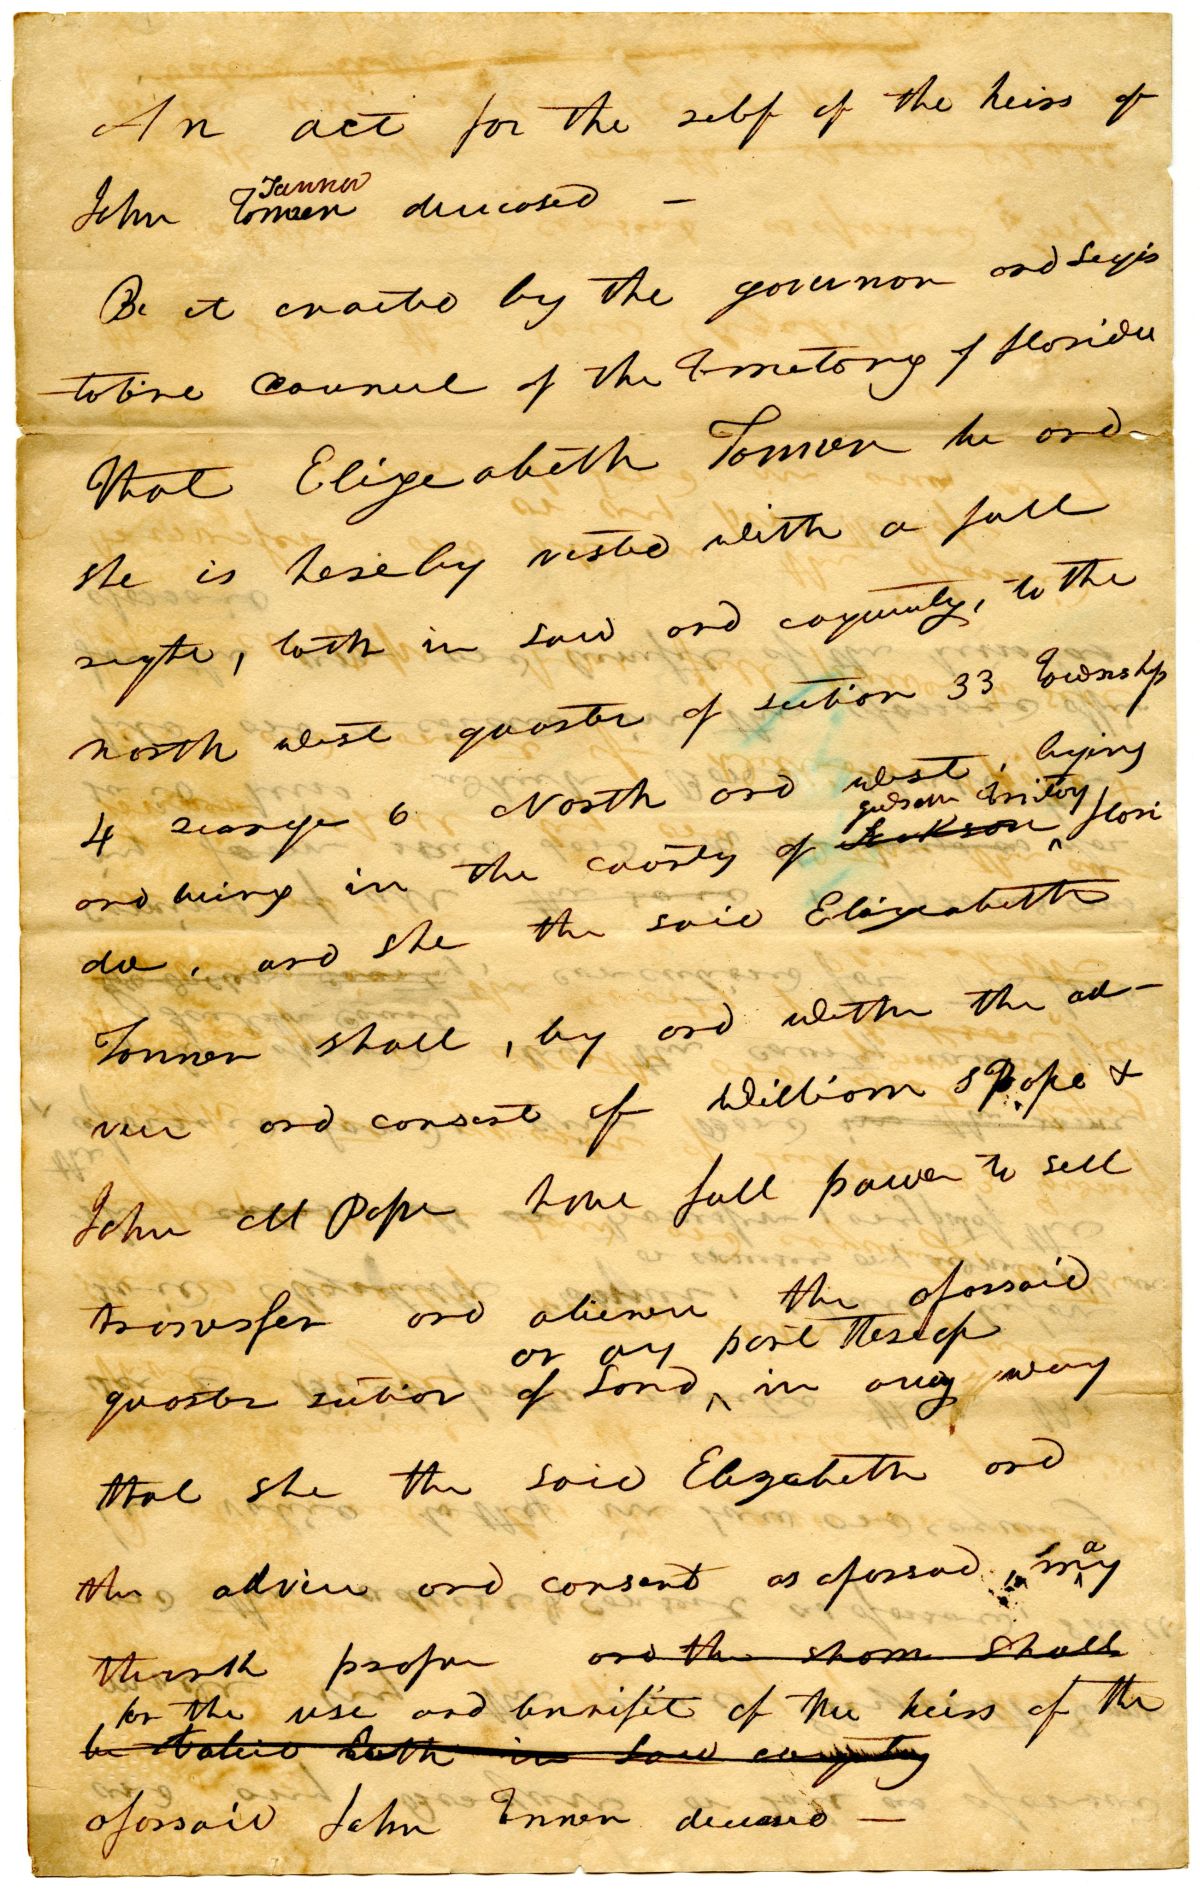 An act for the relif of the heirs of
Tanner
John Tonner deceased —
Be it enacted by the governor and Legis
-lative Council of the Territory of florida
That Elizabeth Tonner be and
she is hereby vested with a full
right, both in Law and equity, to the
north west quarter of section 33 Township
4 range 6 North and west, lying
gadsden Territory
and being in the county of Jackson ^ flori
da, and she the said Elizabeth
Tonner shall, by and with the ad-
vice and consent of William S Pope &
John M Pope have full power to sell
transfer and alienate the aforsaid
or any part thereof
quarter section of Land ^ in any way
that she the said Elizabeth and
the advice and consent as aforsaid, may
think proper and the sham shall
for the use and benifit of the heirs of the
be valid both in Law and equity
aforsaid John Tonner deceased —